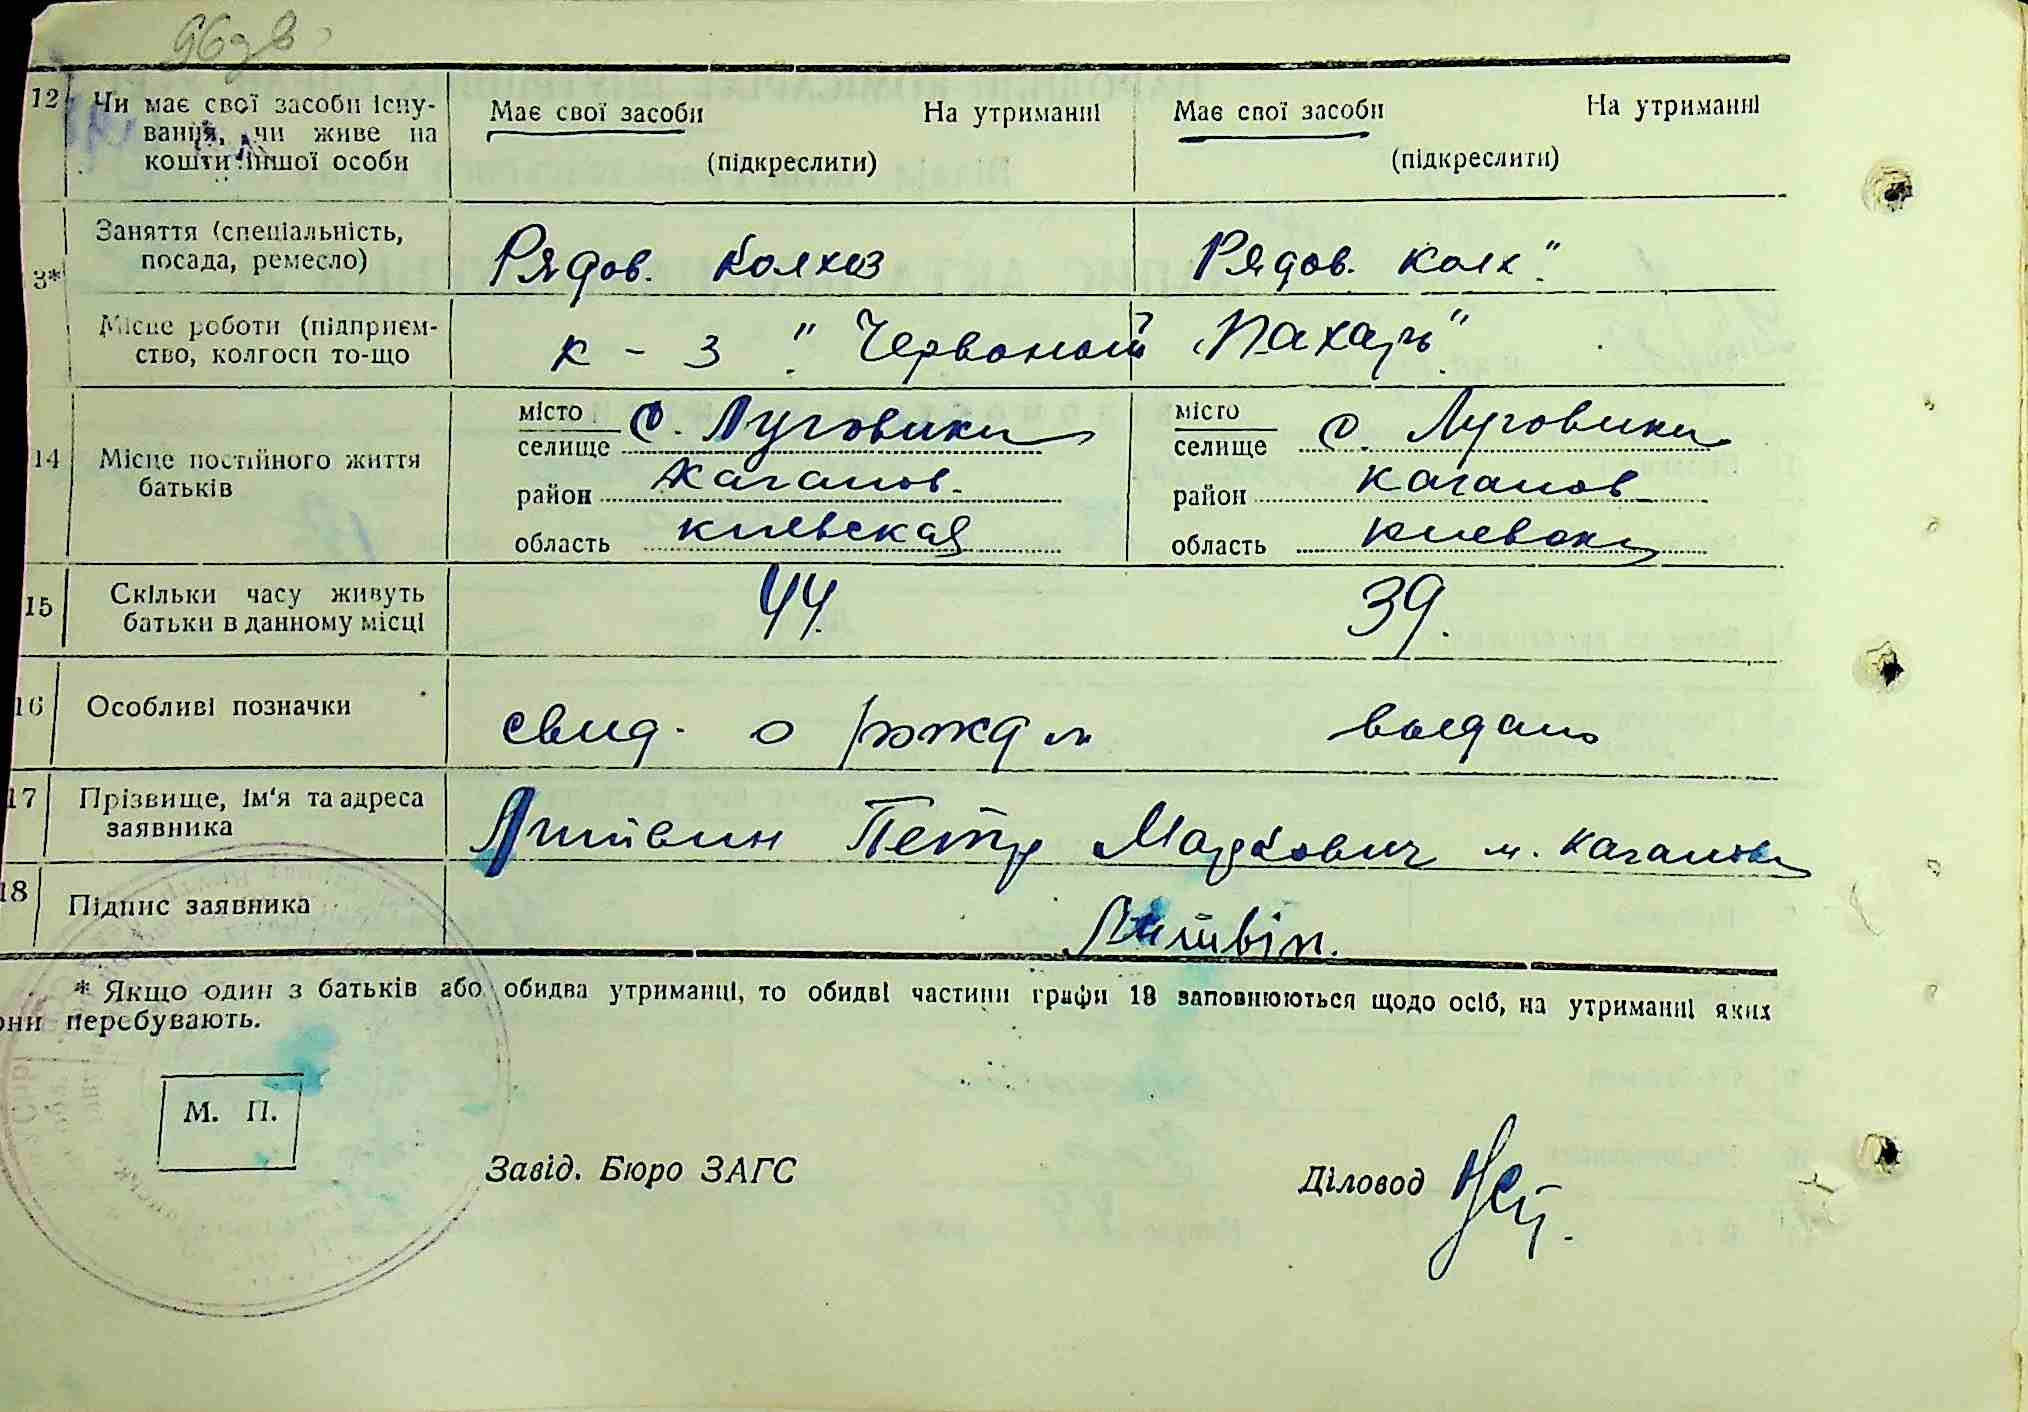 12 Чи має свої засоби існу-
вання, чи живе на
кошти іншої особи
Має свої засоби На утриманні
(підкреслити)
Має свої засоби На утриманні
(підкреслити)
3* Заняття (спеціальність,
посада, ремесло)
Рядов. Колхоз
Рядов. колх."
Місце роботи (підприєм-
ство, колгосп то-що
к-з "Червоний Пахарь"
14 Місце постійного життя
батьків
місто
селище с. Луговики
район Каганов.
область киевская
місто
селище с. Луговики
район Каганов
область киевск
15 Скільки часу живуть
батьки в данному місці
44. 39.
16 Особливі позначки
свид. о рожд м выдано
17 Прізвище, ім'я та адреса
заявника
Литвин Петр Маркович м. Каганов
18 Підпис заявника
Литвін.
* Якщо один з батьків або обидва утриманці, то обидві частини графи 13 заповнюються щодо осіб, на утриманні яких
они перебувають.
М. П.
Завід. Бюро ЗАГС
Діловод